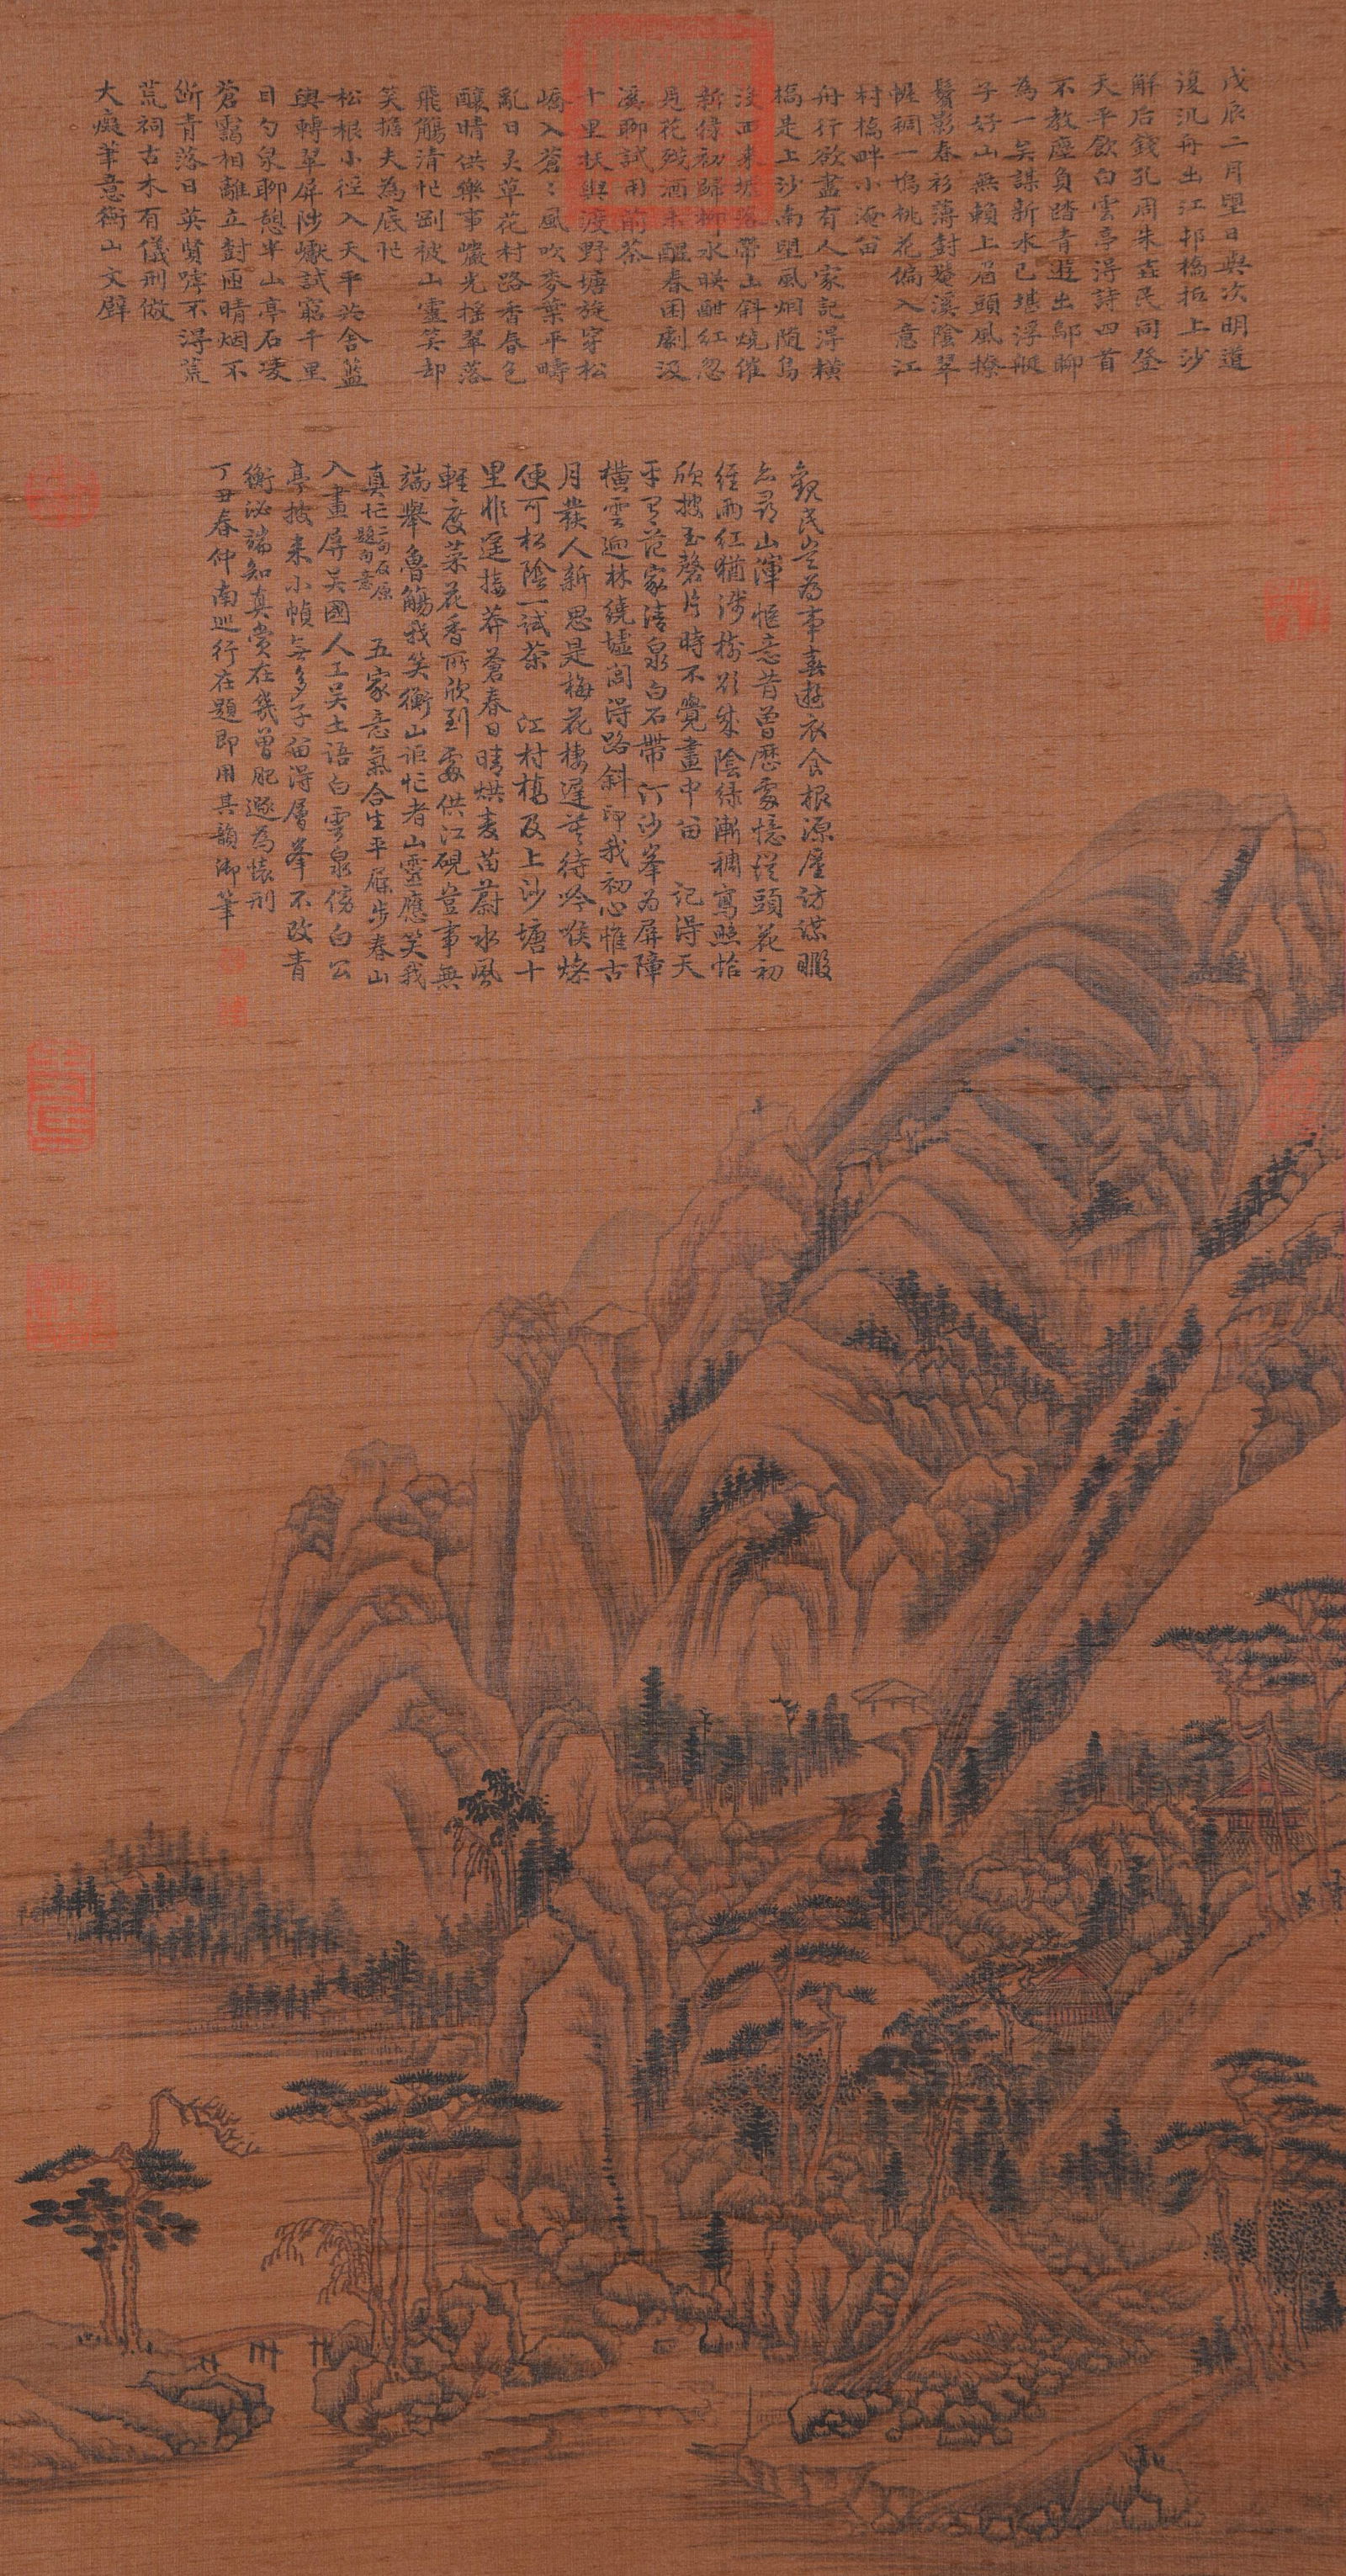 戊辰二月望日與次明道
復汎舟出江邨橋抵上沙
解后錢孔周朱垚民同登
天平飲白雲亭得詩四首
不教塵負踏青遊出郭聊
為一笑謀新水已堪浮艇
子好山無賴上眉頭風撩
鬢影春衫薄對蘸溪陰翠
幄稠一塢桃花偏入意江
村橋畔小淹留
舟行欲盡有人家記得橫
橋是上沙南望風烟隨鳥
沒西來墟落帶山斜燒催
新綠初歸柳水映酣紅忽
見花殘酒未醒春困劇汲
溪聊試雨前茶
十里扶輿渡野塘旋穿松
嶠入蒼〻風吹麥葉平疇
亂日炙草花村路香春色
釀晴供樂事巖光搖翠落
飛觴清忙剛被山靈笑却
笑擔夫為底忙
松根小徑入天平興舍籃
輿轉翠屏陟巘試窮千里
目勺泉聊憩半山亭石淩
蒼靄相離立對面晴烟不
斷青落日英賢嘑不得荒
荒祠古木有儀刑倣
大癡筆意衡山文壁
觀民豈為事春遊衣食根源廑訪謀暇
尋山渾愜意昔曾歷處憶從頭花初
經雨紅猶淺樹欲成陰綠漸稠寫照恰
欣披玉磬片時不覺畫中留 記得天
平有范家清泉白石帶汀沙峯為屏障
橫雲迥林繞墟閭得路斜印我初心惟古
月羨人新思是梅花樓遲莫待吟喉燥
便可松陰一試茶 江村橋及上沙塘十
里非遙接莽蒼春日晴烘麥苗蔚水風
輕度菜花香所欣到處供江硯豈事無
端舉魯觴我笑衡山詎忙者山靈應笑我
真忙二句反原題句意 五家意氣合生平屐步春山
入畫屏吳國人工吳士語白雲泉傍白公
亭披來小幀無多子留得層峯不改青
衡泌端知真賞在幾曾肥遯為懷刑
丁丑春仲南巡行在題即用其韻御筆